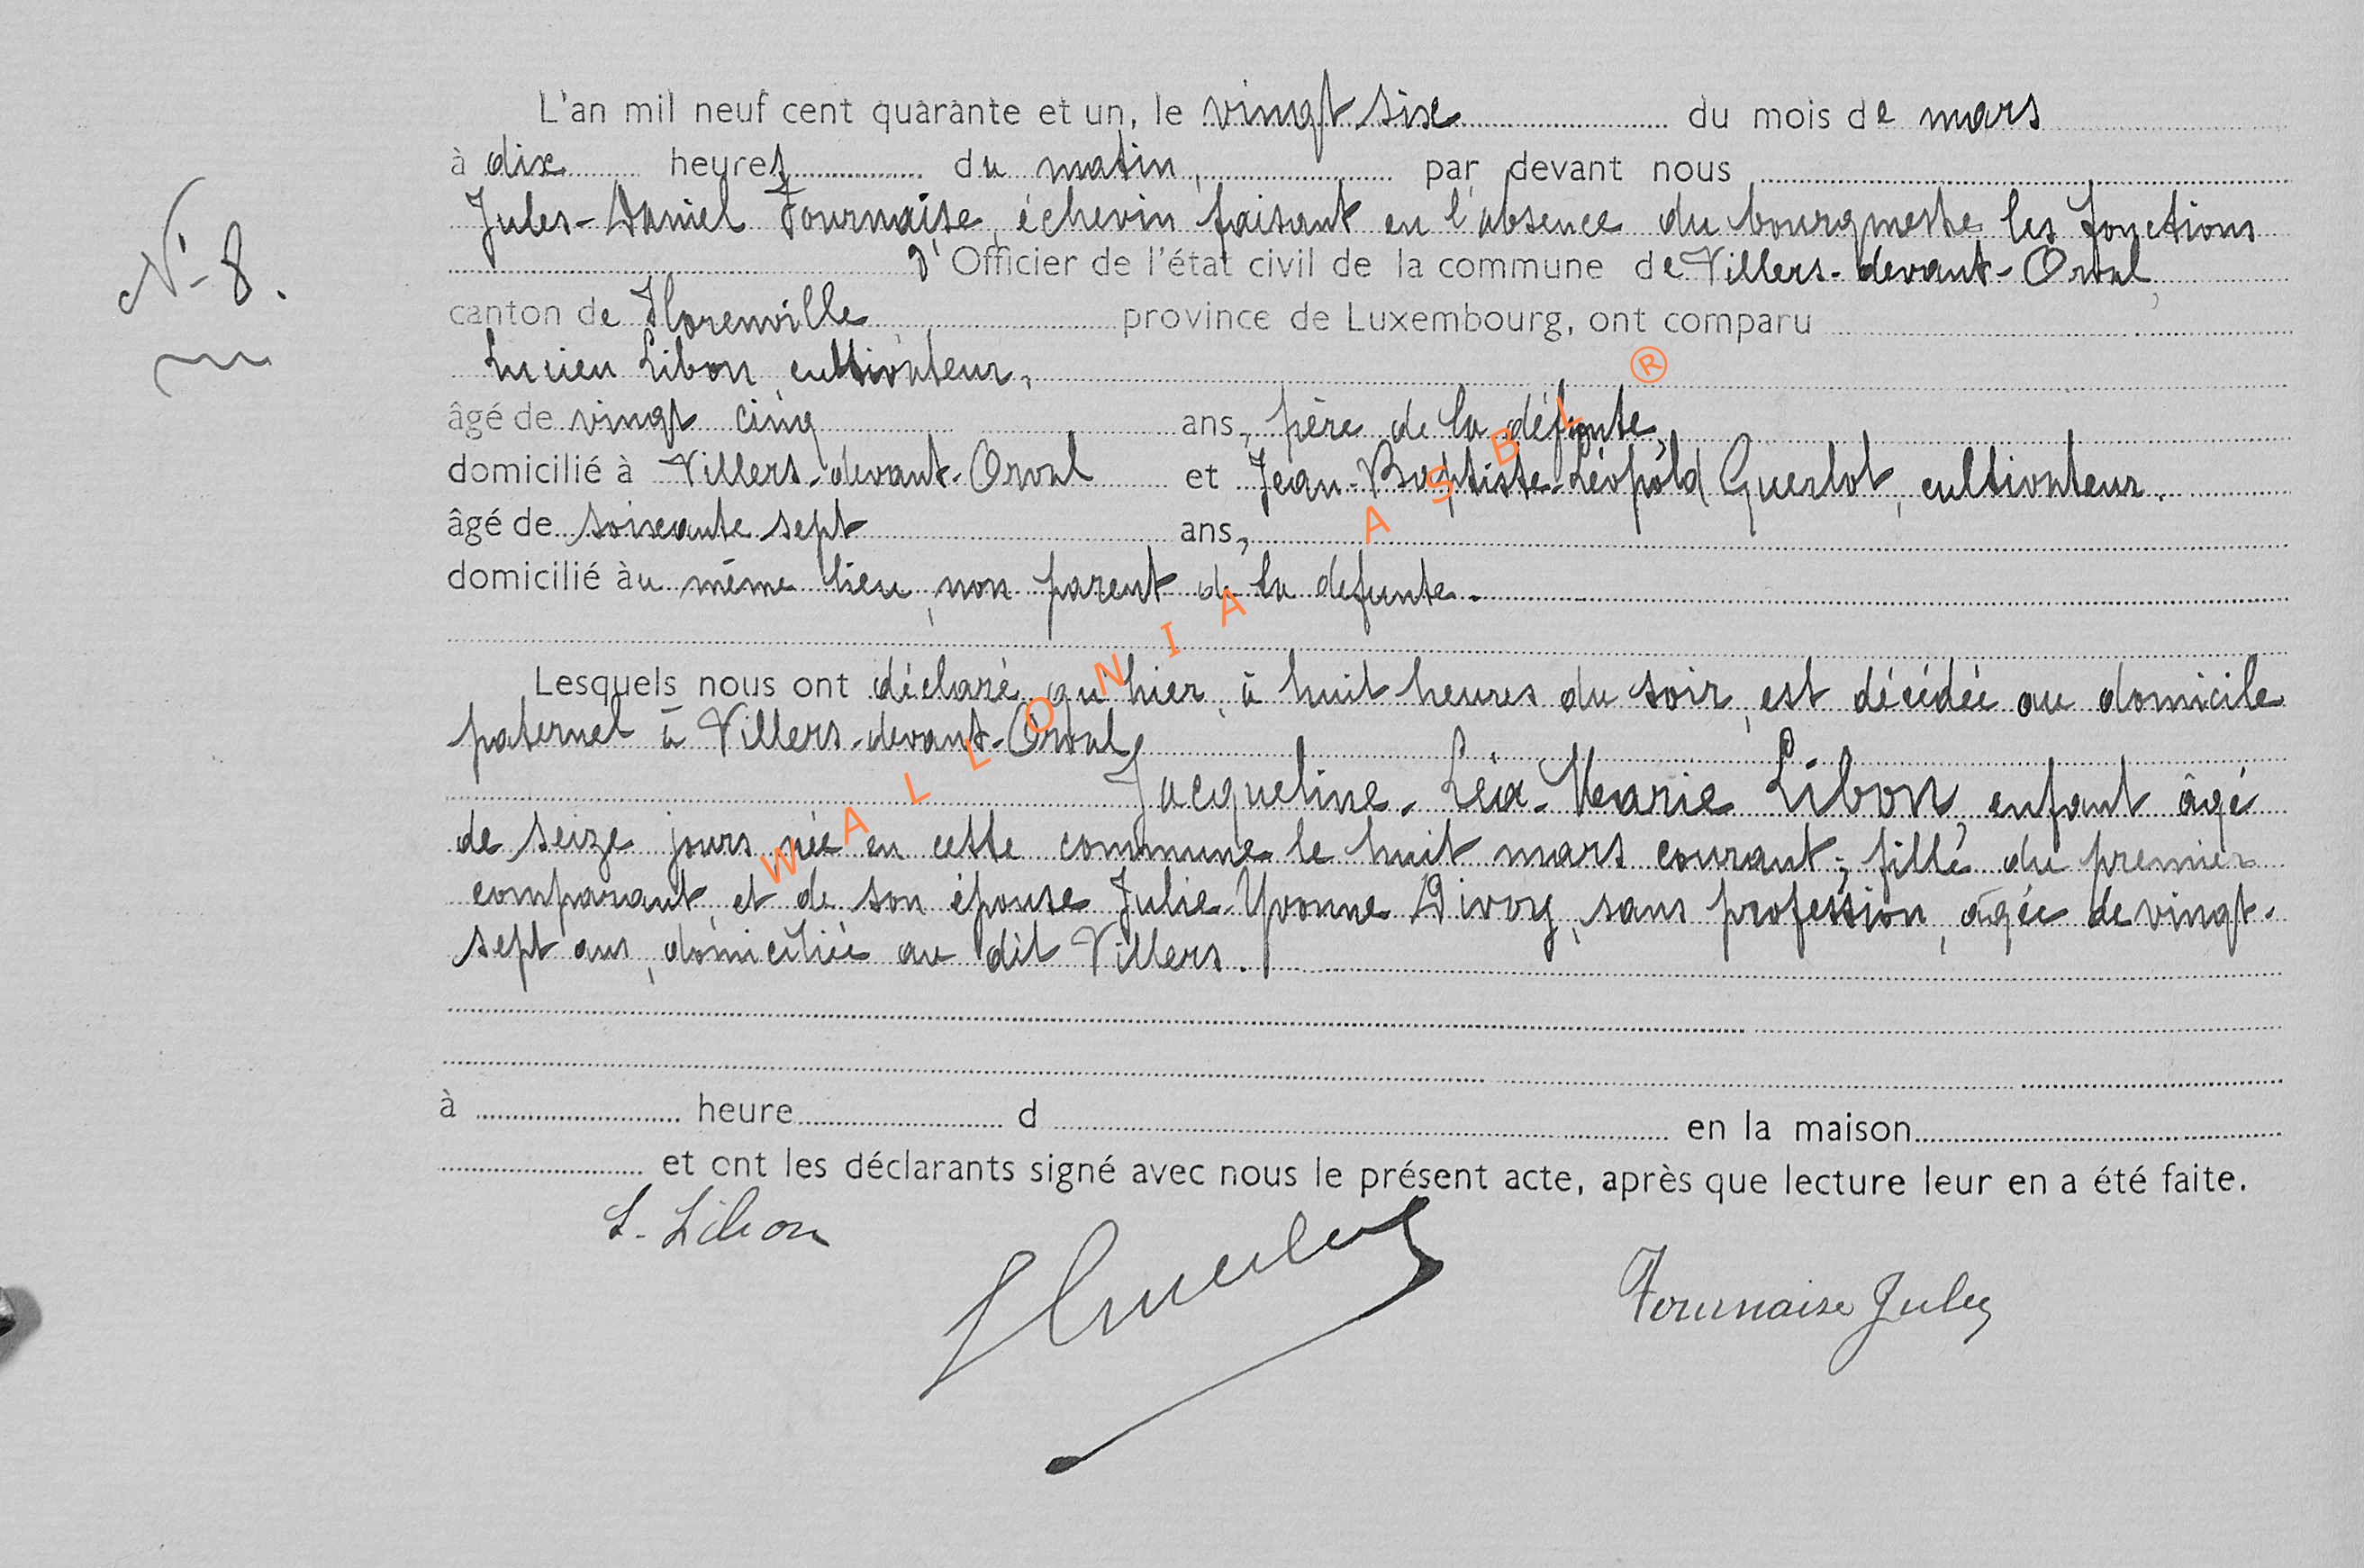 L'an mil neuf cent quarante et un, le vingt six du mois de mars
à dix heures du matin, par devant nous
Jules-Daniel Fournaise, échevin faisant en l'absence du bourgmestre les fonctions
d'Officier de l'état civil de la commune de Villers-devant-Orval,
N° 8.
canton de Florenville, province de Luxembourg, ont comparu
Lucien Libon, cultivateur,
âgé de vingt cinq ans, père de la défunte,
domicilié à Villers-devant-Orval et Jean-Baptiste-Léopold Guerlot, cultivateur.
âgé de soixante sept ans,
domicilié àu même lieu, non parent de la défunte.
Lesquels nous ont déclaré qu'hier, à huit heures du soir, est décédée au domicile
paternel à Villers-devant-Orval,
Jacqueline-Léa-Marie Libon, enfant âgé
de seize jours née en cette commune le huit mars courant; fille du premier
comparant, et de son épouse Julie-Yvonne Divoy, sans profession, âgée de vingt-
sept ans, domiciliée au dit Villers.
à heure d en la maison
et ont les déclarants signé avec nous le présent acte, après que lecture leur en a été faite.
L. Libon
Fournaise Jules
WALLONIA ASBL ®